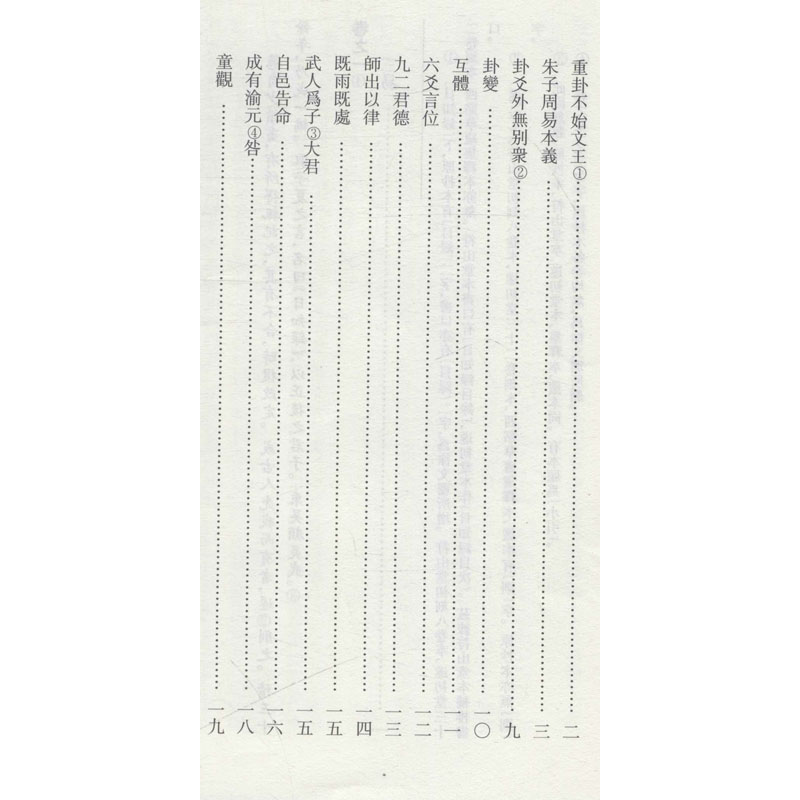 重卦不始文王①……二
朱子周易本義……三
卦爻外無別衆②……九
卦變……一〇
互體……一一
六爻言位……一二
九二君德……一三
師出以律……一四
既雨既處……一五
武人爲子③大君……一五
自邑告命……一六
成有渝元④咎……一八
童觀……一九